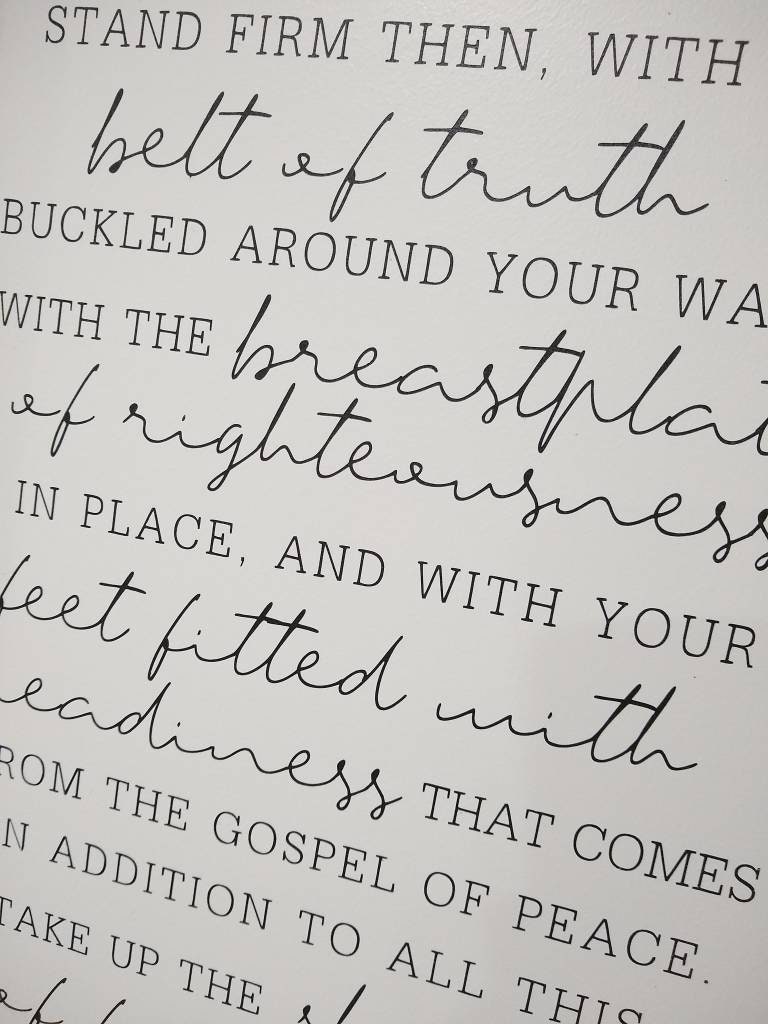 STAND FIRM THEN, WITH
belt of truth
BUCKLED AROUND YOUR WA
WITH THE breastplat
of righteousness
IN PLACE, AND WITH YOUR
feet fitted with
eadiness THAT COMES
ROM THE GOSPEL OF PEACE.
N ADDITION TO ALL THIS
TAKE UP THE
of